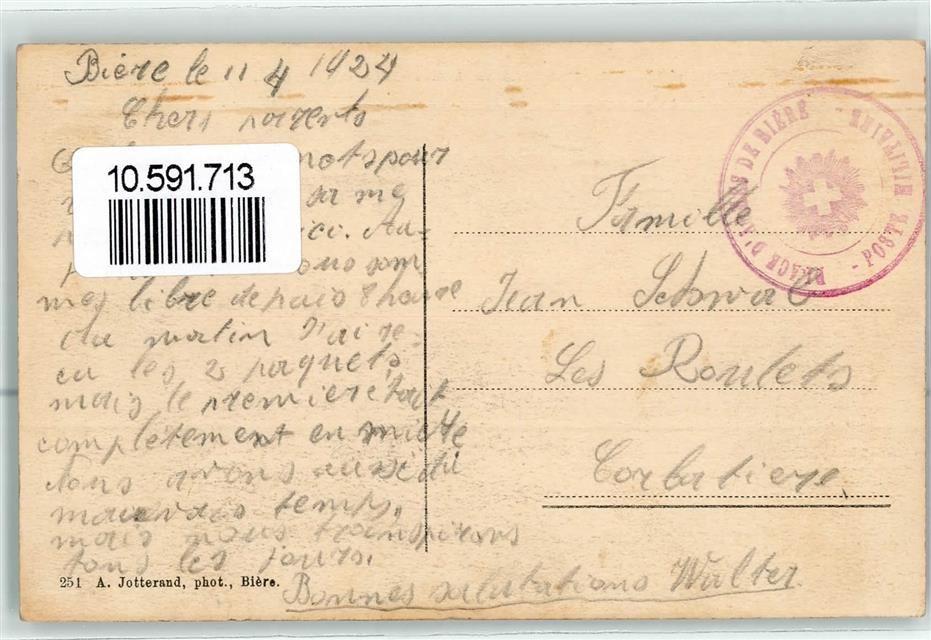 Bière le 11 4 1924
Chers parents
mots pour
me
ici. Au-
nous som
mes libre depuis 8 heure
du matin J'ai re-
cu les 2 paquets,
mais le premier etait
complètement en miette
Nous avons aussi du
mauvais temps,
mais nous transpirons
tous les jours.
Bonnes salutations Walter.
251 A. Jotterand, phot., Bière.
10.591.713
PLACE D'ARMES DE BIÈRE
- POSTE MILITAIRE -
Famille
Jean Schwab
Les Roulets
Corbatiere